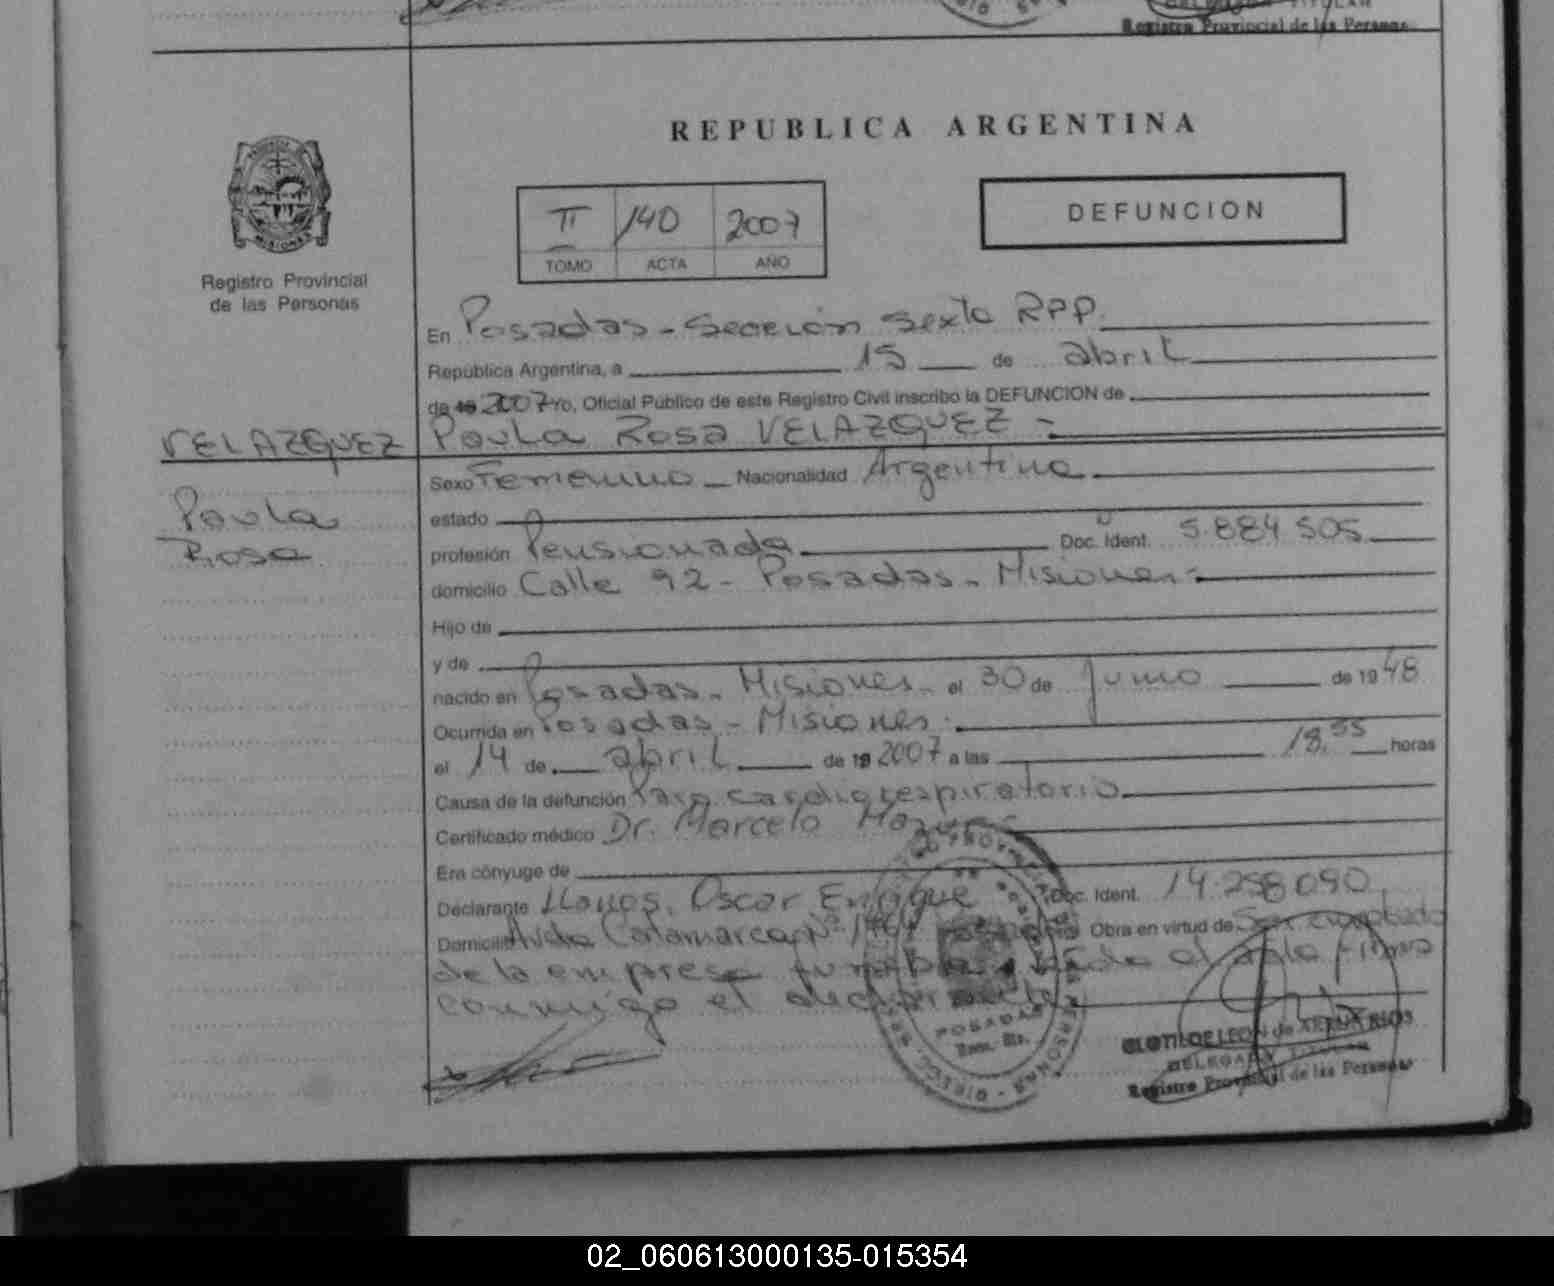 Registro Provincial de las Personas
REPUBLICA ARGENTINA
II 140 2007
TOMO ACTA AÑO
DEFUNCION
MISIONES
Registro Provincial
de las Personas
En Posadas - Sección Sexta RPP.
República Argentina, a 15 de abril
de 19 2007 Yo, Oficial Público de este Registro Civil inscribo la DEFUNCION de
VELAZQUEZ Paula Rosa VELAZQUEZ
Paula
Rosa
Sexo Femenino Nacionalidad Argentina
estado
profesión Pensionada Doc. Ident. 5.884.505
domicilio Calle 92 - Posadas - Misiones
Hijo de
y de
nacido en Posadas - Misiones - el 30 de junio de 1948
Ocurrida en Posadas - Misiones
el 14 de abril de 19 2007 a las 18,55 horas
Causa de la defunción Paro cardiorespiratorio
Certificado médico Dr. Marcelo
Era cónyuge de
Declarante Llanos, Oscar Enrique Doc. Ident. 14.258.090
Domicilio Avda Catamarca Nº Obra en virtud de Ser empleado
de la empresa el acta firma
conmigo el declarante
POSADAS
CLOTILDE LEON de
DELEGADA TITULAR
Registro Provincial de las Personas
02_060613000135-015354